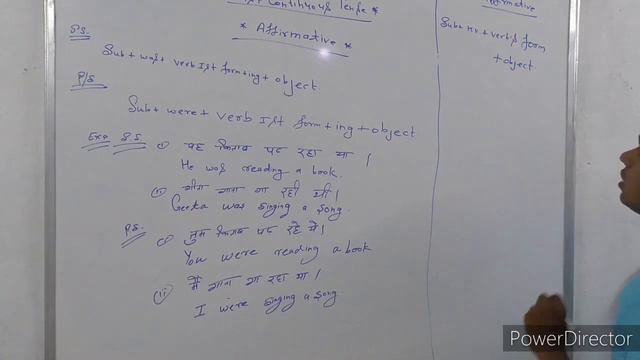 Continuous Tense *
* Affirmative *
S.S.
Sub + was + verb Ist form + ing + object.
P/S
Sub + were + verb Ist form + ing + object
Exa S.S. (i) वह किताब पढ़ रहा था।
He was reading a book.
(ii) गीता गाना गा रही थी।
Geeta was singing a song.
P.S. (i) तुम किताब पढ़ रहे थे।
You were reading a book
(ii) मैं गाना गा रहा था।
I were singing a song.
Affirmative
form
+ object
PowerDirector